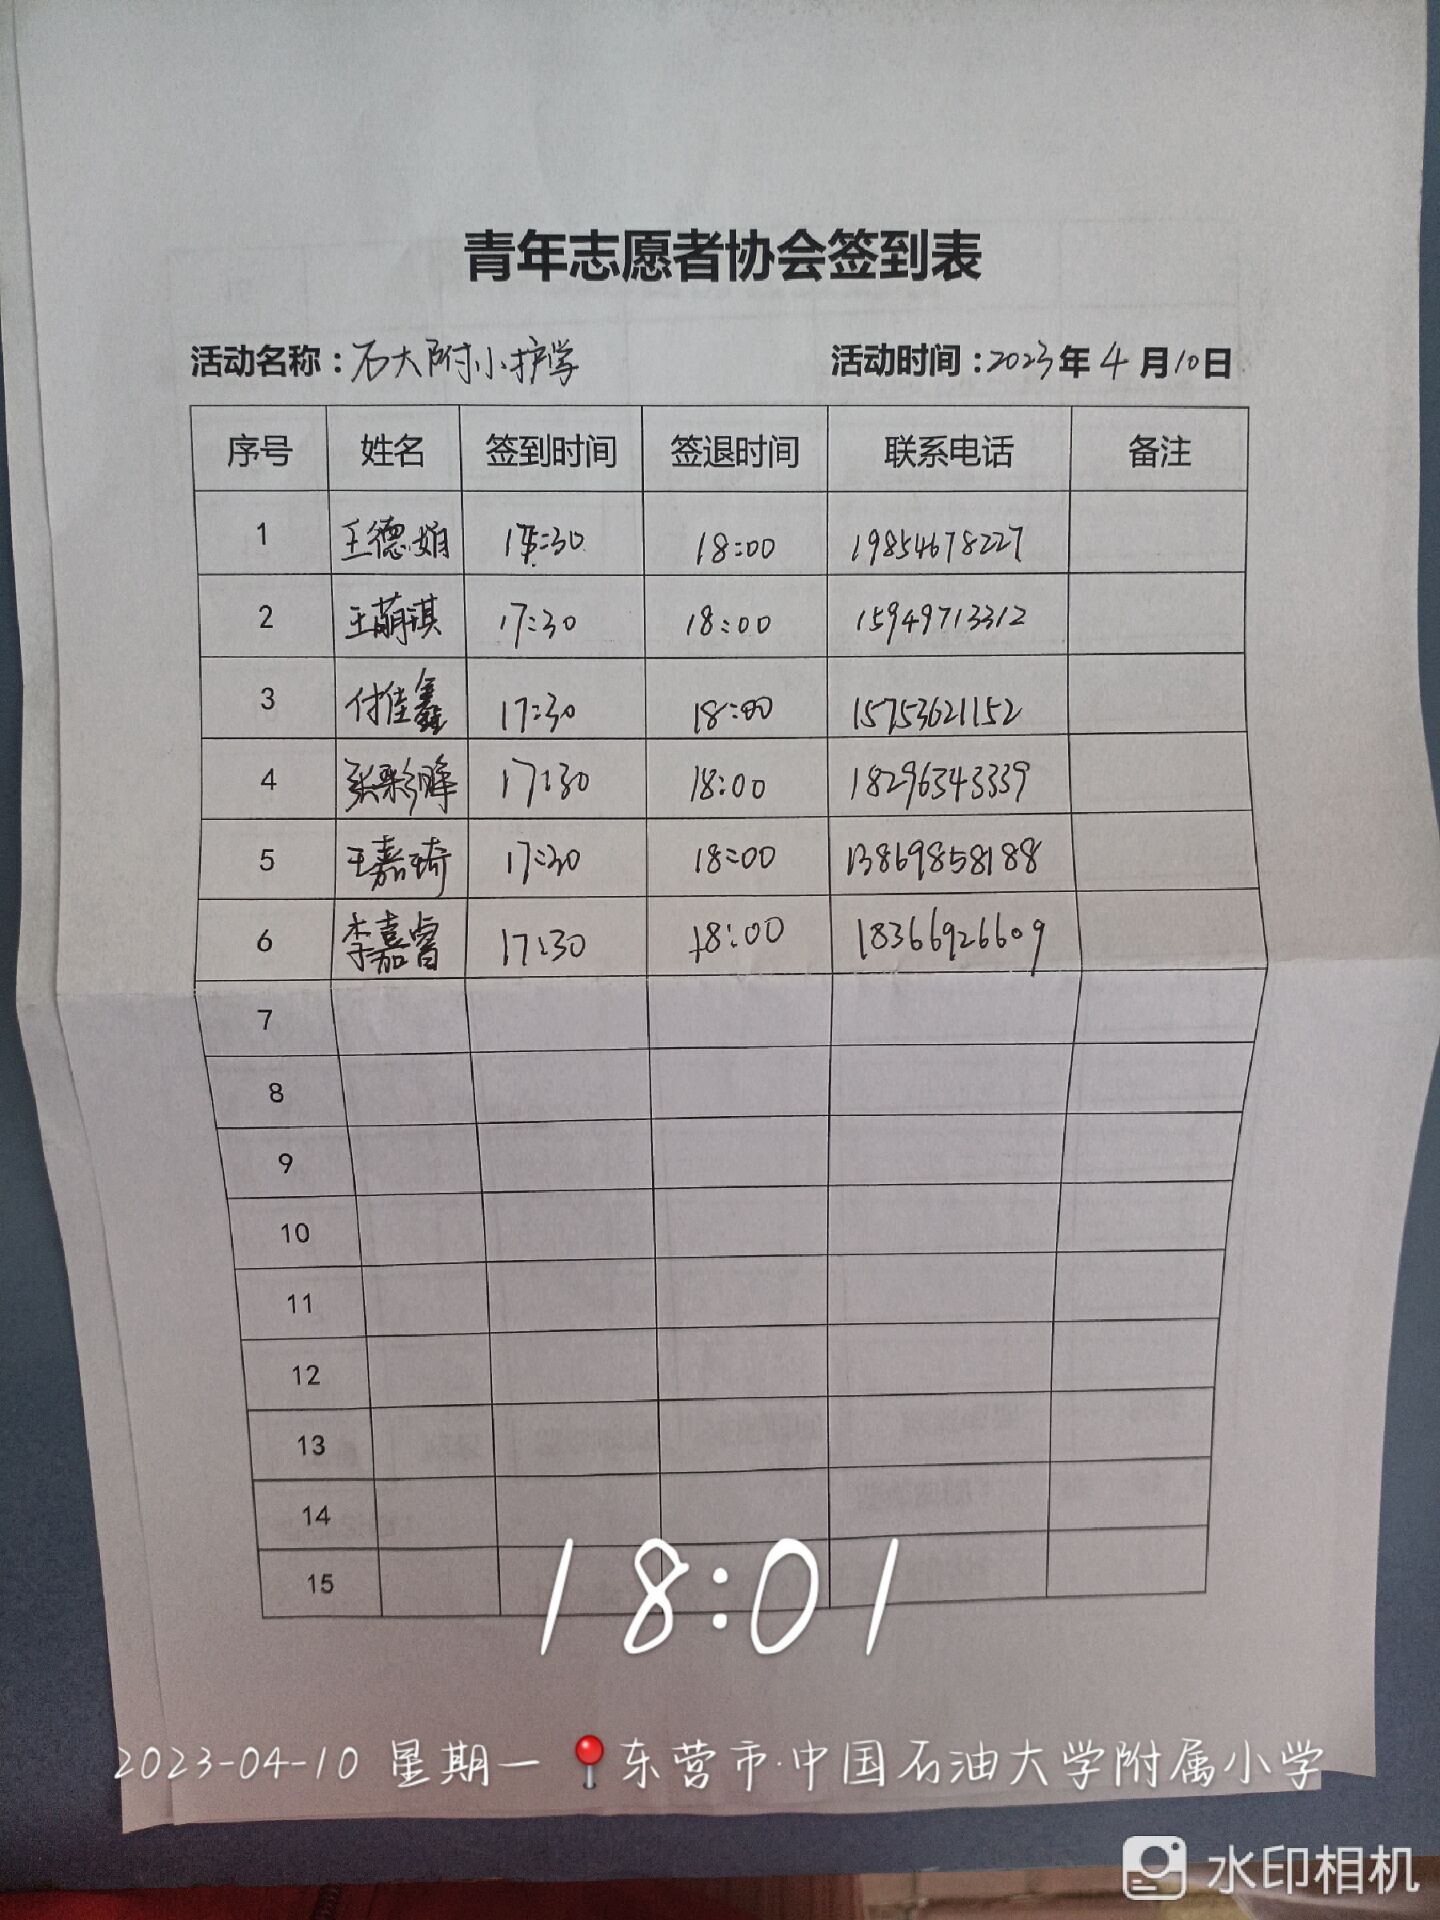 青年志愿者协会签到表
活动名称：石大附小护学 活动时间：2023年4月10日
序号 姓名 签到时间 签退时间 联系电话 备注
1 王德娟 17:30 18:00 19854678227
2 王萌琪 17:30 18:00 15949713312
3 付佳鑫 17:30 18:00 15753621152
4 张彩 17:30 18:00 18296343339
5 王嘉琦 17:30 18:00 13869858188
6 李嘉睿 17:30 18:00 18366926609
7
8
9
10
11
12
13
14
15
18:01
2023-04-10 星期一 东营市·中国石油大学附属小学
水印相机